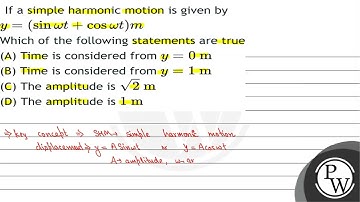 If a simple harmonic motion is given by
y = (sin ωt + cos ωt)m
Which of the following statements are true
(A) Time is considered from y = 0 m
(B) Time is considered from y = 1 m
(C) The amplitude is √2 m
(D) The amplitude is 1 m
⇒ Key concept ⇒ SHM → simple harmonic motion
displacement ⇒ y = A sin ωt or y = A cos ωt
A → amplitude, ω → 
P
W